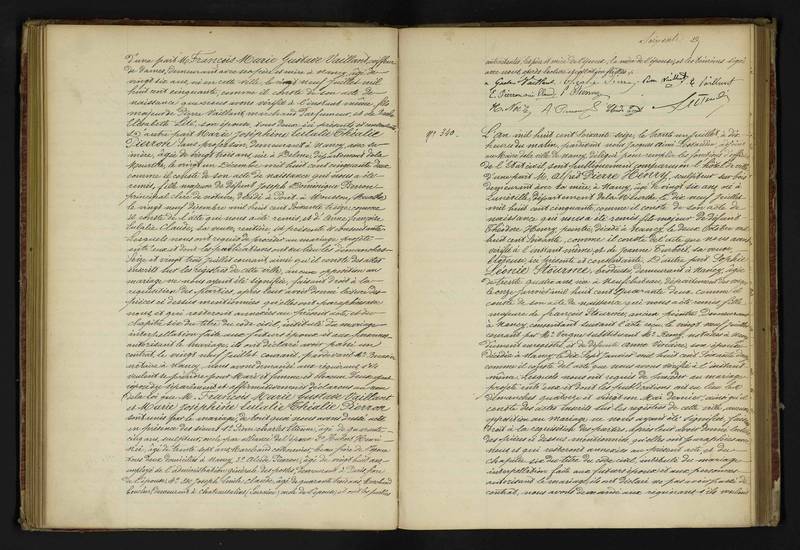 D'une part M. François Marie Gustave Vaillant, coiffeur
de Dames, demeurant avec ses père et mère à Nancy, âgé de
vingt six ans, né en cette ville, le vingt neuf juillet mil
huit cent cinquante, comme il conste de son acte de
naissance que nous avons vérifié à l'instant même, fils
majeur de Pierre Vaillant, marchand Parfumeur, et de
Elisabeth son épouse, tous deux ici présents et consentants
D'autre part Marie Joséphine Eulalie Thécelie
Pierron sans profession, demeurant à Nancy, avec sa
mère, âgée de vingt trois ans, née à département de la
Meurthe, le vingt un Décembre mil huit cent cinquante deux
comme il conste de son acte de naissance qui nous a été
remis, fille majeure de défunt Joseph Dominique Pierron
principal clerc de notaire, décédé à Pont à Mousson,
le vingt neuf Décembre mil huit cent soixante treize, comme
il conste de l'acte qui nous a été remis et d'Anne Françoise
Eulalie Claude, sa veuve, rentière, ici présente et consentante
Lesquels nous ont requis de procéder au mariage projeté
entr'eux et dont les publications ont eu lieu les dimanches
seize et vingt trois juillet courant, ainsi qu'il conste des actes
inscrits sur les registres de cette ville, aucune opposition au
mariage ne nous ayant été signifiée, faisant droit à la
réquisition des parties, après leur avoir donné lecture des
pièces ci dessus mentionnées qu'elles ont paraphées avec
nous et qui resteront annexées au présent acte, et du
chapitre six du titre du code civil, intitulé du mariage
interpellation faite aux futurs époux et aux personnes
autorisant le mariage, ils ont déclaré avoir passé un
contrat le vingt neuf juillet courant, pardevant Me
notaire à Nancy, nous avons demandé aux requérants s'ils
veulent se prendre pour Mari et femme, et chacun d'eux ayant
répondu séparément et affirmativement, déclarons au nom
de la loi que M. François Marie Gustave Vaillant
et Marie Joséphine Eulalie Thécelie Pierron
sont unis par le mariage, de tout quoi nous avons dressé acte
en présence des sieurs Jean Charles Etienne, âgé de quarante
cinq ans, sculpteur, oncle par alliance de l'époux,
âgé de trente sept ans, Marchand, beau frère de l'époux
tous deux domiciliés à Nancy, Alcide Pierron, âgé de vingt huit ans
employé de l'administration générale des postes, demeurant à Paris, frère
de l'épouse, et Joseph Emile Claude, âgé de quarante trois ans, Marchand
demeurant à oncle de l'épouse, et ont les parties
29
contractantes, les père et mère de l'époux, la mère de l'épouse, et les témoins signé
avec nous après lecture et
Gustave Vaillant Eulalie Pierron Vaillant
E. Pierron née Claude Etienne
A. Pierron E. Claude
No. 340.
L'an mil huit cent soixante seize, le trente un juillet, à dix
heures du matin, pardevant nous Jacques adjoint
au Maire de la ville de Nancy, délégué pour remplir les fonctions d'officier
de l'Etat civil, sont publiquement comparus à l'hôtel de ville
D'une part M. Alfred Pierre Henry, sculpteur sur bois
demeurant avec sa mère à Nancy, âgé de vingt six ans, né à
Lunéville, département de la Meurthe, le dix neuf juillet
mil huit cent cinquante, comme il conste de son acte de
naissance qui nous a été remis, fils majeur de défunt
Théodore Henry, peintre, décédé à Nancy, le deux Octobre mil
huit cent soixante, comme il conste de l'acte que nous avons
vérifié à l'instant même, et de Jeanne sa veuve
ici présente et consentante. D'autre part Sophie
Léonie brodeuse, demeurant à Nancy, âgée
de trente quatre ans, née à Neufchâteau, département des Vosges
le onze janvier mil huit cent quarante deux, comme il
conste de son acte de naissance, qui nous a été remis, fille
majeure de François ancien peintre, demeurant
à Nancy, consentant suivant l'acte reçu le vingt neuf juillet
courant par Me notaire à Nancy
dument enregistré, et de défunte Anne son épouse
décédée à Nancy, le dix sept janvier mil huit cent soixante
comme il conste de l'acte que nous avons vérifié à l'instant
même. Lesquels nous ont requis de procéder au mariage
projeté entr'eux et dont les publications ont eu lieu les
dimanches quatorze et vingt un Mai dernier, ainsi qu'il
conste des actes inscrits sur les registres de cette ville, aucune
opposition au mariage ne nous ayant été signifiée, faisant
droit à la réquisition des parties, après leur avoir donné lecture
des pièces ci dessus mentionnées, qu'elles ont paraphées avec
nous et qui resteront annexées au présent acte, et du
chapitre six du titre du code civil intitulé du mariage
interpellation faite aux futurs époux et aux personnes
autorisant le mariage, ils ont déclaré ne pas avoir passé de
contrat, nous avons demandé aux requérants s'ils veulent